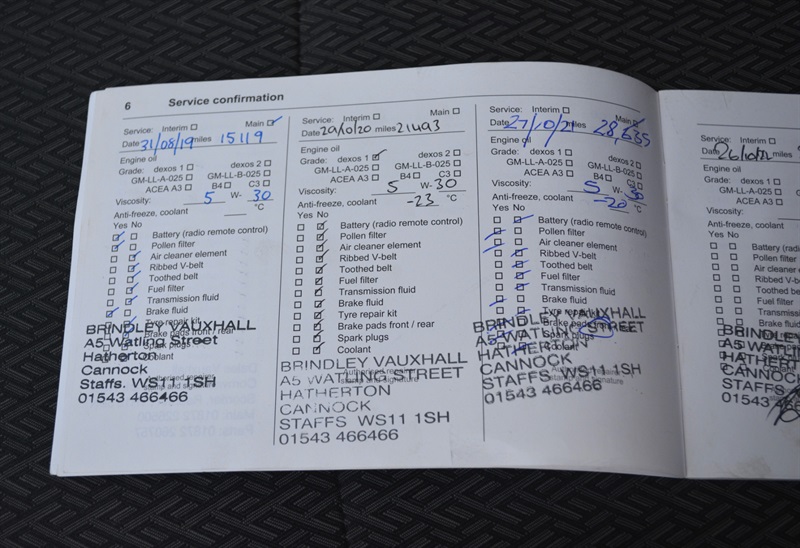 6 Service confirmation
Service: Interim Main
Date 31/08/19 miles 15119
Engine oil
Grade: dexos 1 dexos 2
GM-LL-A-025 GM-LL-B-025
ACEA A3 B4 C3
Viscosity: 5 W- 30
Anti-freeze, coolant °C
Yes No
Battery (radio remote control)
Pollen filter
Air cleaner element
Ribbed V-belt
Toothed belt
Fuel filter
Transmission fluid
Brake fluid
Tyre repair kit
Brake pads front / rear
Spark plugs
Coolant
Authorised repairers
stamp and signature
BRINDLEY VAUXHALL
A5 Watling Street
Hatherton
Cannock
Staffs. WS11 1SH
01543 466466
Service: Interim Main
Date 29/10/20 miles 21493
Engine oil
Grade: dexos 1 dexos 2
GM-LL-A-025 GM-LL-B-025
ACEA A3 B4 C3
Viscosity: 5 W- 30
Anti-freeze, coolant -23 °C
Yes No
Battery (radio remote control)
Pollen filter
Air cleaner element
Ribbed V-belt
Toothed belt
Fuel filter
Transmission fluid
Brake fluid
Tyre repair kit
Brake pads front / rear
Spark plugs
Coolant
Authorised repairers
stamp and signature
BRINDLEY VAUXHALL
A5 WATLING STREET
HATHERTON
CANNOCK
STAFFS WS11 1SH
01543 466466
Service: Interim Main
Date 27/10/21 miles 28,635
Engine oil
Grade: dexos 1 dexos 2
GM-LL-A-025 GM-LL-B-025
ACEA A3 B4 C3
Viscosity: 5 W- 30
Anti-freeze, coolant -20 °C
Yes No
Battery (radio remote control)
Pollen filter
Air cleaner element
Ribbed V-belt
Toothed belt
Fuel filter
Transmission fluid
Brake fluid
Tyre repair kit
Brake pads front / rear
Spark plugs
Coolant
BRINDLEY VAUXHALL
A5 WATLING STREET
HATHERTON
CANNOCK
STAFFS WS11 1SH
01543 466466
Service: Interim
Date
Engine oil
Grade: dexos 1
GM-LL-A-025
ACEA A3
Viscosity:
Anti-freeze, coolant
Yes No
Battery (radi
Pollen filter
Air cleaner e
Ribbed V-be
Toothed be
Fuel filter
Transmissi
Brake fluid
BRINDLE
A5 WATL
HATHERT
CANNOCK
STAFFS
01543 4